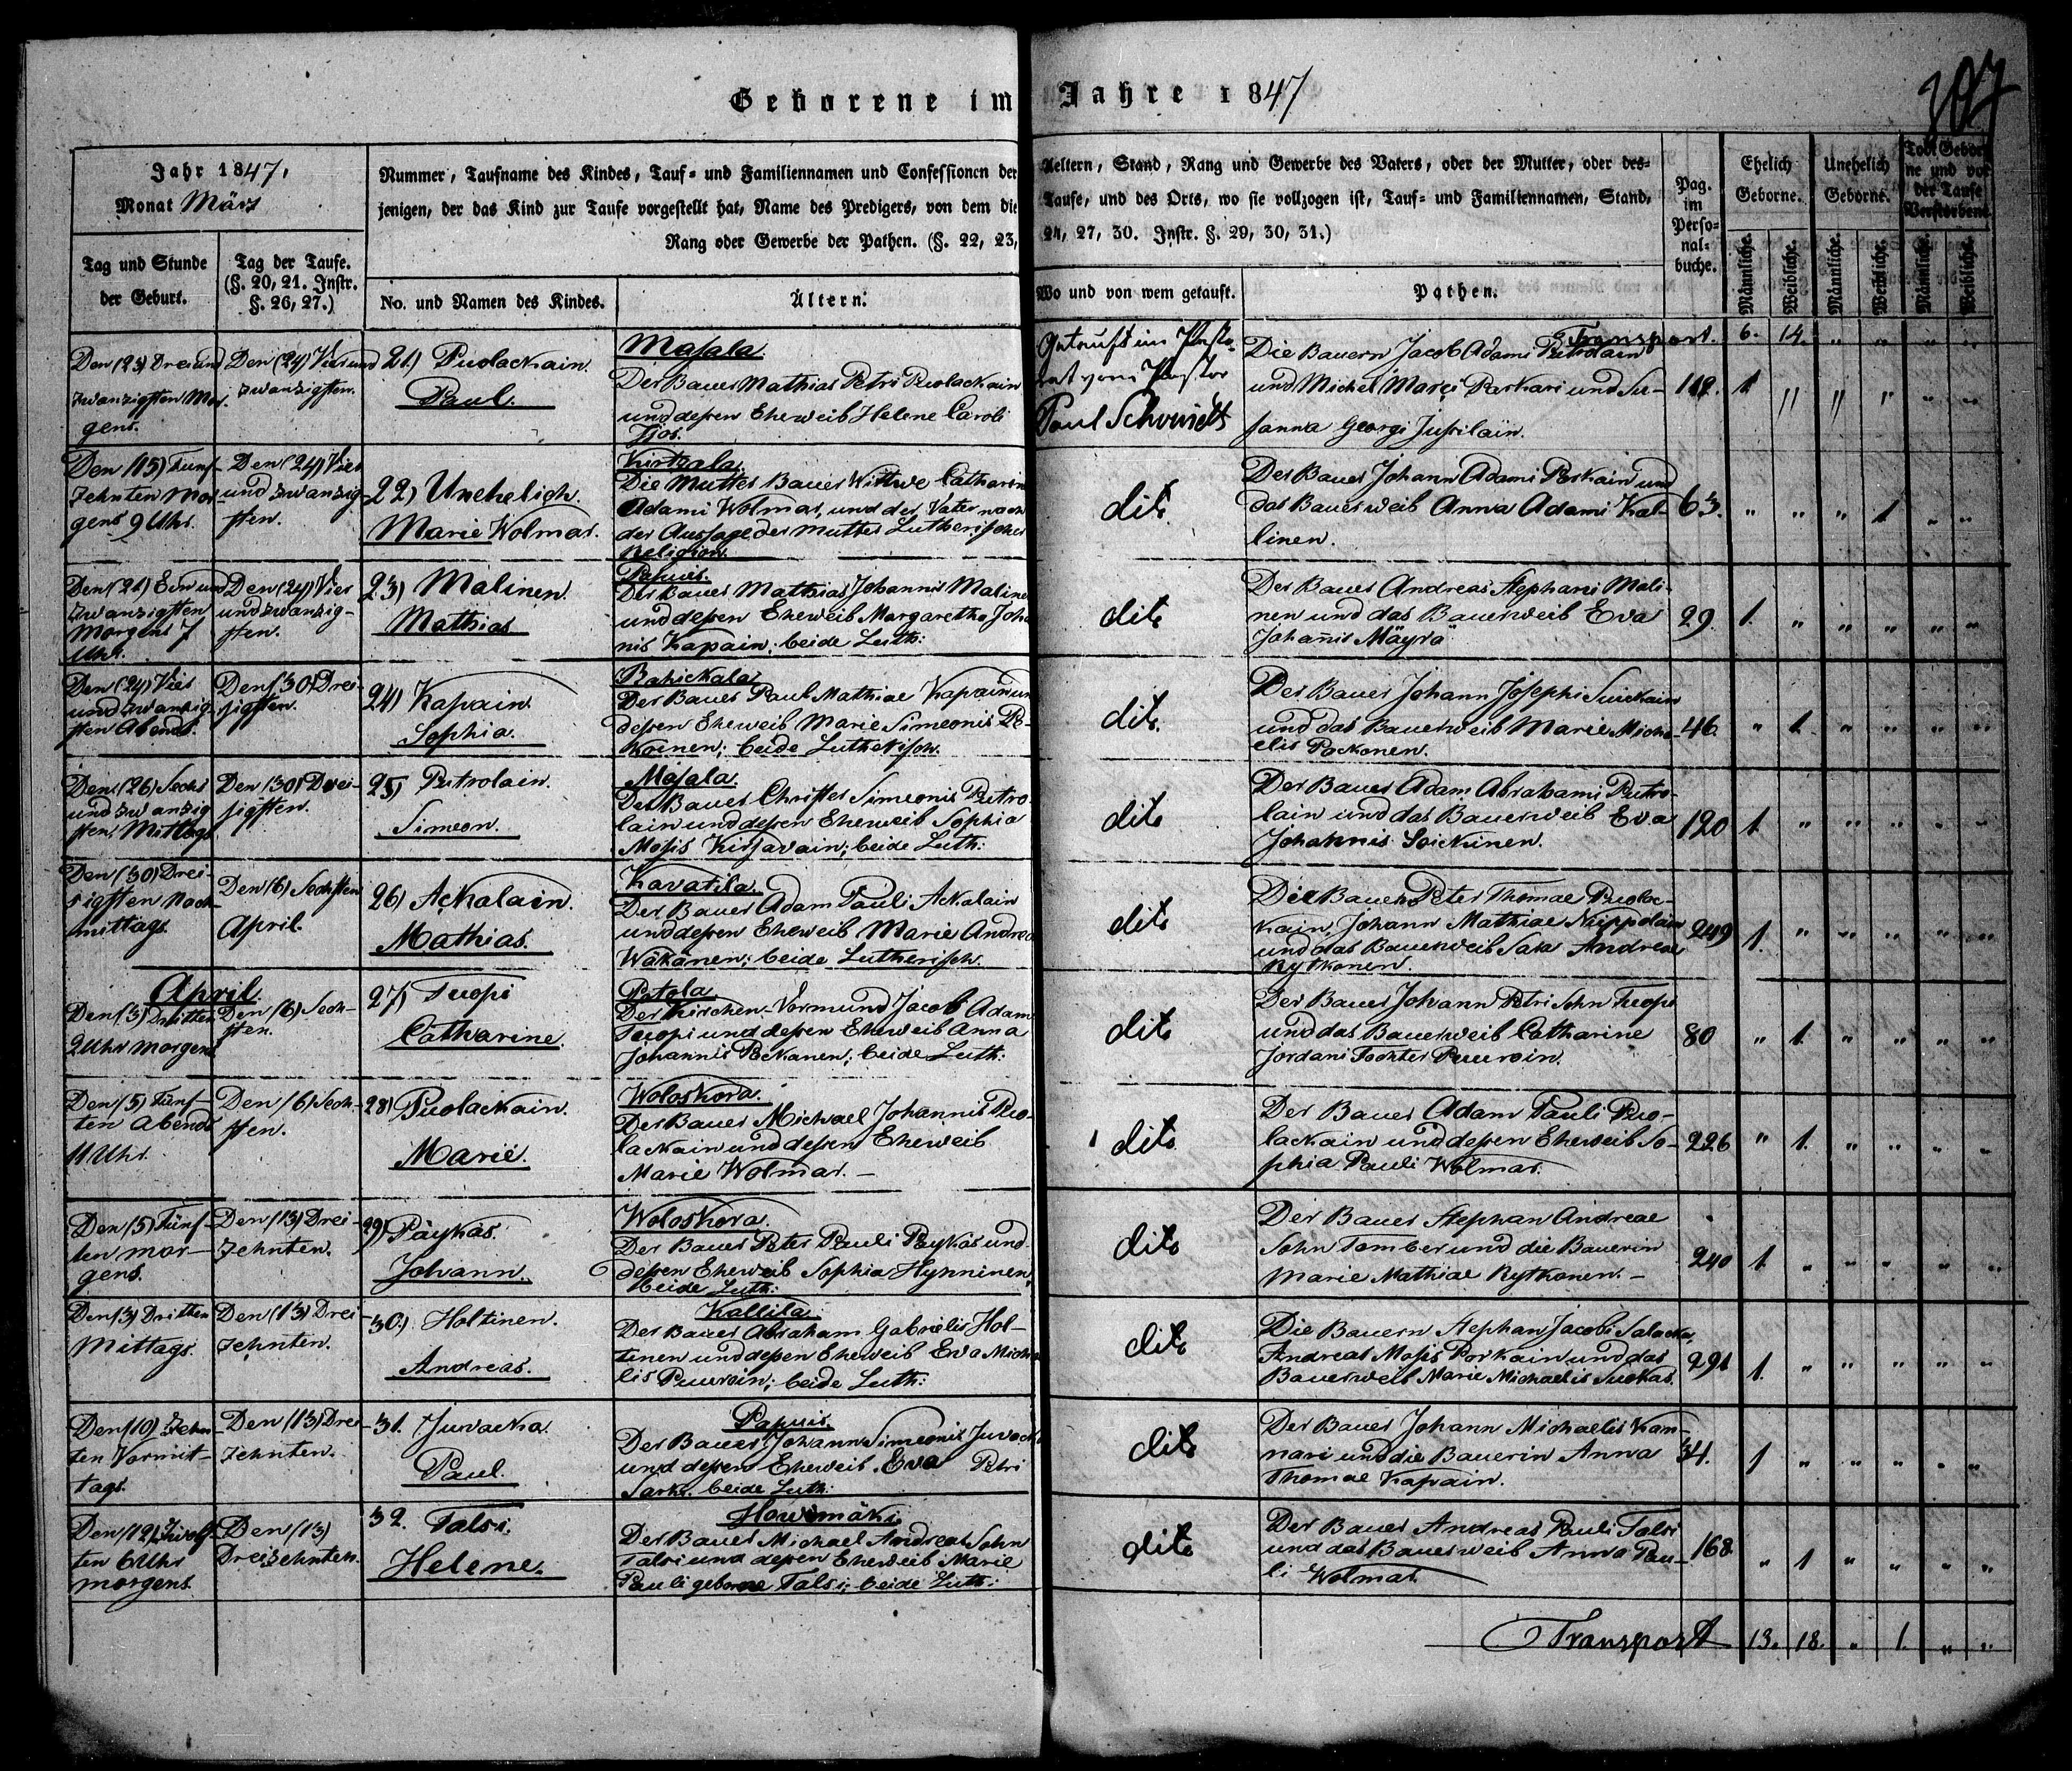 Geborene im Jahre 1847
307
Jahr 1847,
Monat März
Tag und Stunde
der Geburt.
Tag der Taufe.
(§. 20, 21. Instr.
§. 26, 27.)
Nummer, Taufname des Kindes, Tauf- und Familiennamen und Confessionen der Aeltern, Stand, Rang und Gewerbe des Vaters, oder der Mutter, oder des-
jenigen, der das Kind zur Taufe vorgestellt hat, Name des Predigers, von dem die Taufe, und des Orts, wo sie vollzogen ist, Tauf- und Familiennamen, Stand,
Rang oder Gewerbe der Pathen. (§. 22, 23, 24, 27, 30. Instr. §. 29, 30, 31.)
No. und Namen des Kindes.
Ältern.
Wo und von wem getauft.
Pathen.
Pag.
im
Perso-
nal-
buche.
Ehelich
Geborne.
Unehelich
Geborne.
Todt Gebor-
ne und vor
der Taufe
Verstorbene
Männliche.
Weibliche.
Männliche.
Weibliche.
Männliche.
Weibliche.
Transport. 6. 14. " " " "
Den (23) Dreiund
zwanzigsten Mor-
gens.
Den (24) Vierund
zwanzigsten.
21) Puolackain.
Paul.
Masala.
Der Bauer Mathias Petri Puolackain
und dessen Eheweib Helene Caroli
Tjos.
Getauft im Pasto-
rat vom Pastor
Paul Schwindt
Die Bauern Jacob Adami Putrolain
und Michel Marci Parkari und Su-
sanna Georgi Jussilain.
119. 1 " " " " "
Den (15) Funf-
zehnten Mor-
gens 9 Uhr.
Den (24) Vier
und zwanzig-
sten.
22) Unehelich.
Marie Wolmar.
Kirtzala.
Die Mutter Bauer Wittwe Catharine
Adami Wolmar, und der Vater nach
der Aussage der Mutter Lutherischer
Religion.
dito
Der Bauer Johann Adami Parkain und
das Bauerweib Anna Adami Kal-
linen.
63. " " " 1 " "
Den (21) Ein und
zwanzigsten
Morgens 7
Uhr.
Den (24) Vier
und zwanzig-
sten.
23) Malinen
Mathias
Papuis.
Der Bauer Mathias Johannis Maline
und dessen Eheweib Margaretha Joha
nis Kapain; beide Luth:
dito
Der Bauer Andreas Stephani Mali-
nen und das Bauerweib Eva
Johannis Mäyrä
29. 1. " " " " "
Den (24) Vier
und zwanzig-
sten Abends.
Den (30) Drei-
sigsten.
24) Kapain
Sophia.
Rahickala
Der Bauer Paul Mathiae Kapain und
dessen Eheweib Marie Simeonis Po-
koinen; beide Lutherisch.
dito.
Der Bauer Johann Josephi Suickain
und das Bauerweib Marie Micha-
elis Pockonen.
46. " 1. " " " "
Den (26) Sechs
und zwanzig
sten Mittags
Den (30) Drei-
sigsten.
25) Putrolain.
Simeon.
Masala.
Der Bauer Christer Simeonis Putro-
lain und dessen Eheweib Sophia
Mosis Kirjavain; beide Luth:
dito
Der Bauer Adam Abrahami Putro-
lain und das Bauerweib Eva
Johannis Soickinen.
120 1. " " " " "
Den (30) Drei-
sigsten Nach-
mittags.
Den (6) Sechsten
April.
26) Ackalain.
Mathias.
Kavatila
Der Bauer Adam Pauli Ackalain
und dessen Eheweib Marie Andrea
Wäkänen; beide Lutherisch.
dito
Die Bauer Peter Thomae Puolac-
kain, Johann Mathiae Nuippolain
und das Bauerweib Sara Andreae
Rytkonen.
249 1 " " " " "
April.
Den (3) Dritten
2 Uhr morgens
Den (6) Sech-
sten.
27) Turopi
Catharine.
Potola
Der Kirchen-Vormund Jacob Adam
Turopi und dessen Eheweib Anna
Johannis Pekanen; beide Luth:
dito
Der Bauer Johann Petri Sohn Turopi
und das Bauerweib Catharine
Jordani Tochter Puuroin.
80 " 1. " " " "
Den (5) Fünf-
ten Abends
11 Uhr.
Den (6) Sech-
sten.
28) Puolackain.
Marie.
Woloskora.
Der Bauer Michael Johannis Puo-
lackain und dessen Eheweib
Marie Wolmar. —
dito
Der Bauer Adam Pauli Puo-
lackain und dessen Eheweib So-
phia Pauli Wolmar.
226 " 1. " " " "
Den (5) Fünf-
ten mor-
gens.
Den (13) Drei-
zehnten.
29) Päykäs
Johann.
Woloskora.
Der Bauer Peter Pauli Päykäs und
dessen Eheweib Sophia Hynninen
beide Luth:
dito
Der Bauer Stephan Andreae
Sohn Tomber und die Bauerin
Marie Mathiae Rytkonen. —
240 1. " " " " "
Den (3) Dritten
Mittags.
Den (13) Drei-
zehnten.
30.) Holtinen.
Andreas.
Kallila.
Der Bauer Abraham Gabrielis Hol-
tinen und dessen Eheweib Eva Micha
lis Puuroin; beide Luth:
dito
Die Bauern Stephan Jacobi Salacka,
Andreas Mosis Porkain und das
Bauerweib Marie Michaelis Suokas.
291 1. " " " " "
Den (10) Zehn-
ten Vormit-
tags.
Den (13) Drei-
zehnten.
31. Juvacka
Paul.
Papuis
Der Bauer Johann Simeonis Juvacka
und dessen Eheweib Eva Petri
Sarka. beide Luth:
dito
Der Bauer Johann Michaelis Kam-
nari und die Bauerin Anna
Thomae Kapain.
34. 1 " " " " "
Den (12) Zwölf-
ten 6 Uhr
morgens.
Den (13)
Dreizehnten.
32. Talsi.
Helene.
Howimäki
Der Bauer Michael Andreas Sohn
Talsi und dessen Eheweib Marie
Pauli geborne Talsi; beide Luth:
dito
Der Bauer Andreas Pauli Talsi
und das Bauerweib Anna Pau-
li Wolmar.
168. " 1 " " " "
Transport 13. 18. " 1. " "